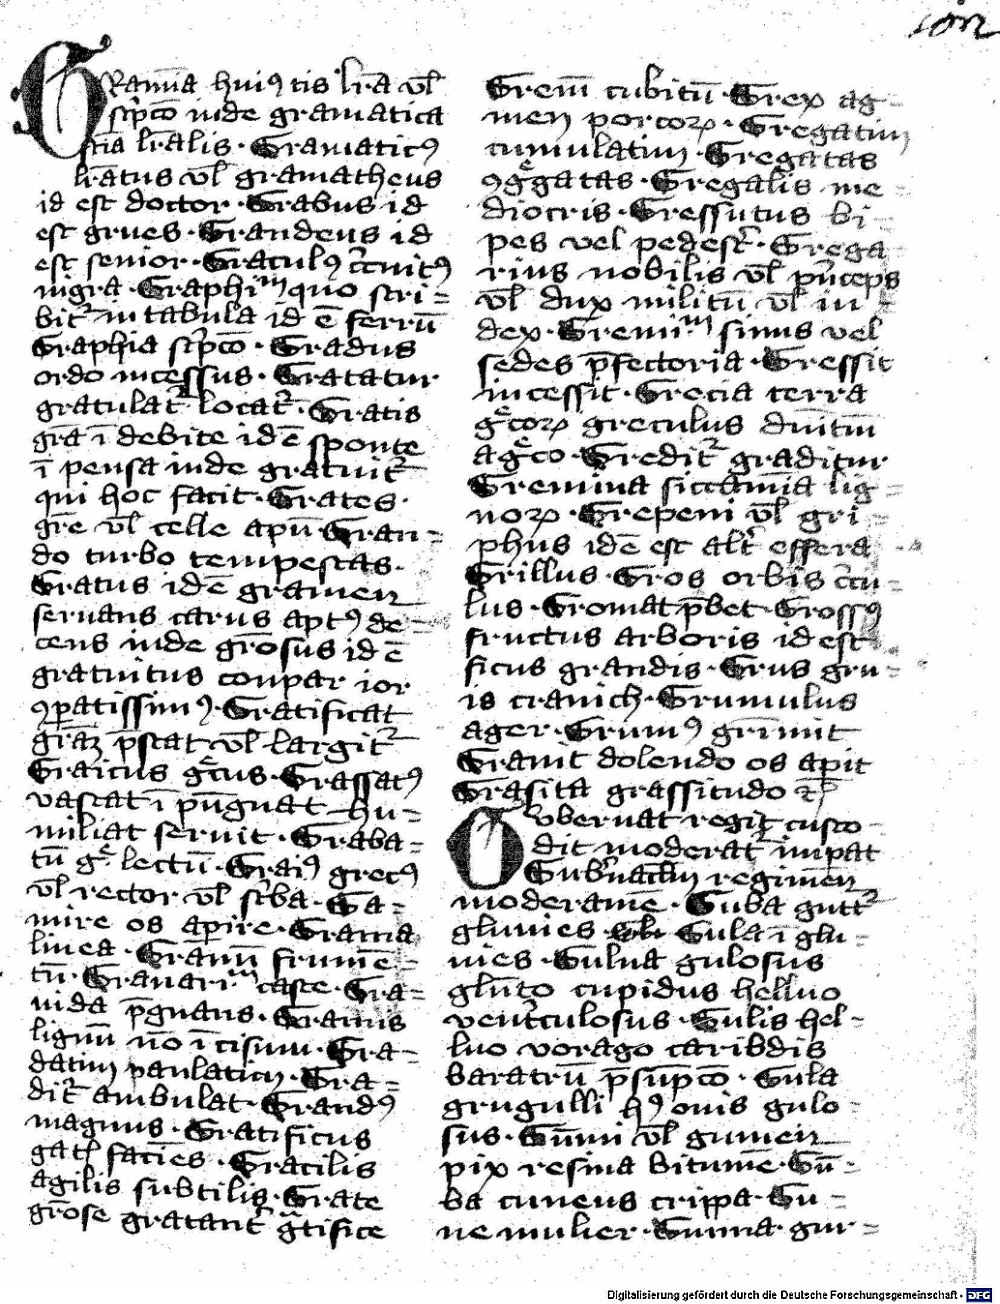 Gramma huiꝯ tis lr̄a vl̄
sc̓pco᷄ inde gramatica
sc̄ia lr̄alis · Gramaticꝯ
lr̄atus vl̄ gramatheus
id est doctor · Grabus id
est grues · Grandeus id
est senior · Graculꝯ
nigra · Graphiū quo scri=
bit᷑ in tabula id ē ferrū
Graphia sc̓pco᷄ · Gradus
ordo incessus · Gratatur
gratulat᷑ locat᷑ · Gratis
gr̄a ī debite id ē sponte
ī pensa inde gratuit᷑
qui hoc facit · Grates ·
gr̄e vl̄ celle apū Gran=
do turbo tempestas ·
Gratus idē gramen
seruans carus aptꝯ de=
cens inde gr̄osus id ē
gratuitus conpar ior
ꝯparatissimꝯ · Gratificat
gr̄aꝫ p̄stat vl̄ largit᷑
Graicus gͤcus · Grassatꝯ
vastat ī pūgnat hu=
miliat seruit · Graba=
tū gͤ lectū · Graiꝯ grecꝯ
vl̄ rector vl̄ sc̓ba · Ga=
mire os apire · Grama
linea · Granū frume=
tū · Granariū caste · Gra=
uida p̄gnans · Gramis
lignū nō ī cisum · Gra=
datim paulatim · Gra=
dit᷑ ambulat · Grandꝯ
magnus · Gratificus
faciēs · Gracilis
agilis subtilis · Grate
gr̄ose gratant᷑ gͣtifice
Gremī cubitū · Grex ag=
men porcoꝝ · Gregatim
cumulatim · Gregatas
ꝯgͤgatas · Gregalis me=
diocris · Gressutus bi=
pes vel pedest᷑ · Grega
rius nobilis vl̄ p̓nceps
vl̄ dux militū vl̄ iu
dex · Gremiū sinus vel
sedes p̄fectoria · Gressit
incessit · Grecia terra
gͤcoꝝ greculus diminutiuū
a gͤco · Gredit᷑ graditur
Gremina siccamīa lig=
noꝝ · Grepem vl̄ gri=
phus idē est alt᷑ effera
Grillus · Gros orbis ccu=
lus · Gromat p̄bet · Grossꝯ
fructus arboris id est
ficus grandis · Grus gru=
is cranich · Grumulus
ager · Grumꝯ grimit
Granit dolendo os apit
Grasita grassitudo ⁊c̄
Gubernat regit custo=
dit moderat᷑ inpat
Gub̓nacl̄m regimen
moderamē · Guba gutt᷑
gluuies Gula ī glu=
uies · Guluā gulosus
glūto cupidus helluo
vent᷑culosus · Gulis hel=
luo vorago caribdis
baratrū p̄sūpco᷄ · Gula
grugulli hꝯ ouis gulo=
sus · Gūmi vl̄ gumen
pix resina bitumē · Gū=
ba cuneus crippa · Gu=
ne mulier · Gunna gur=
Digitalisierung gefördert durch die Deutsche Forschungsgemeinschaft · DFG